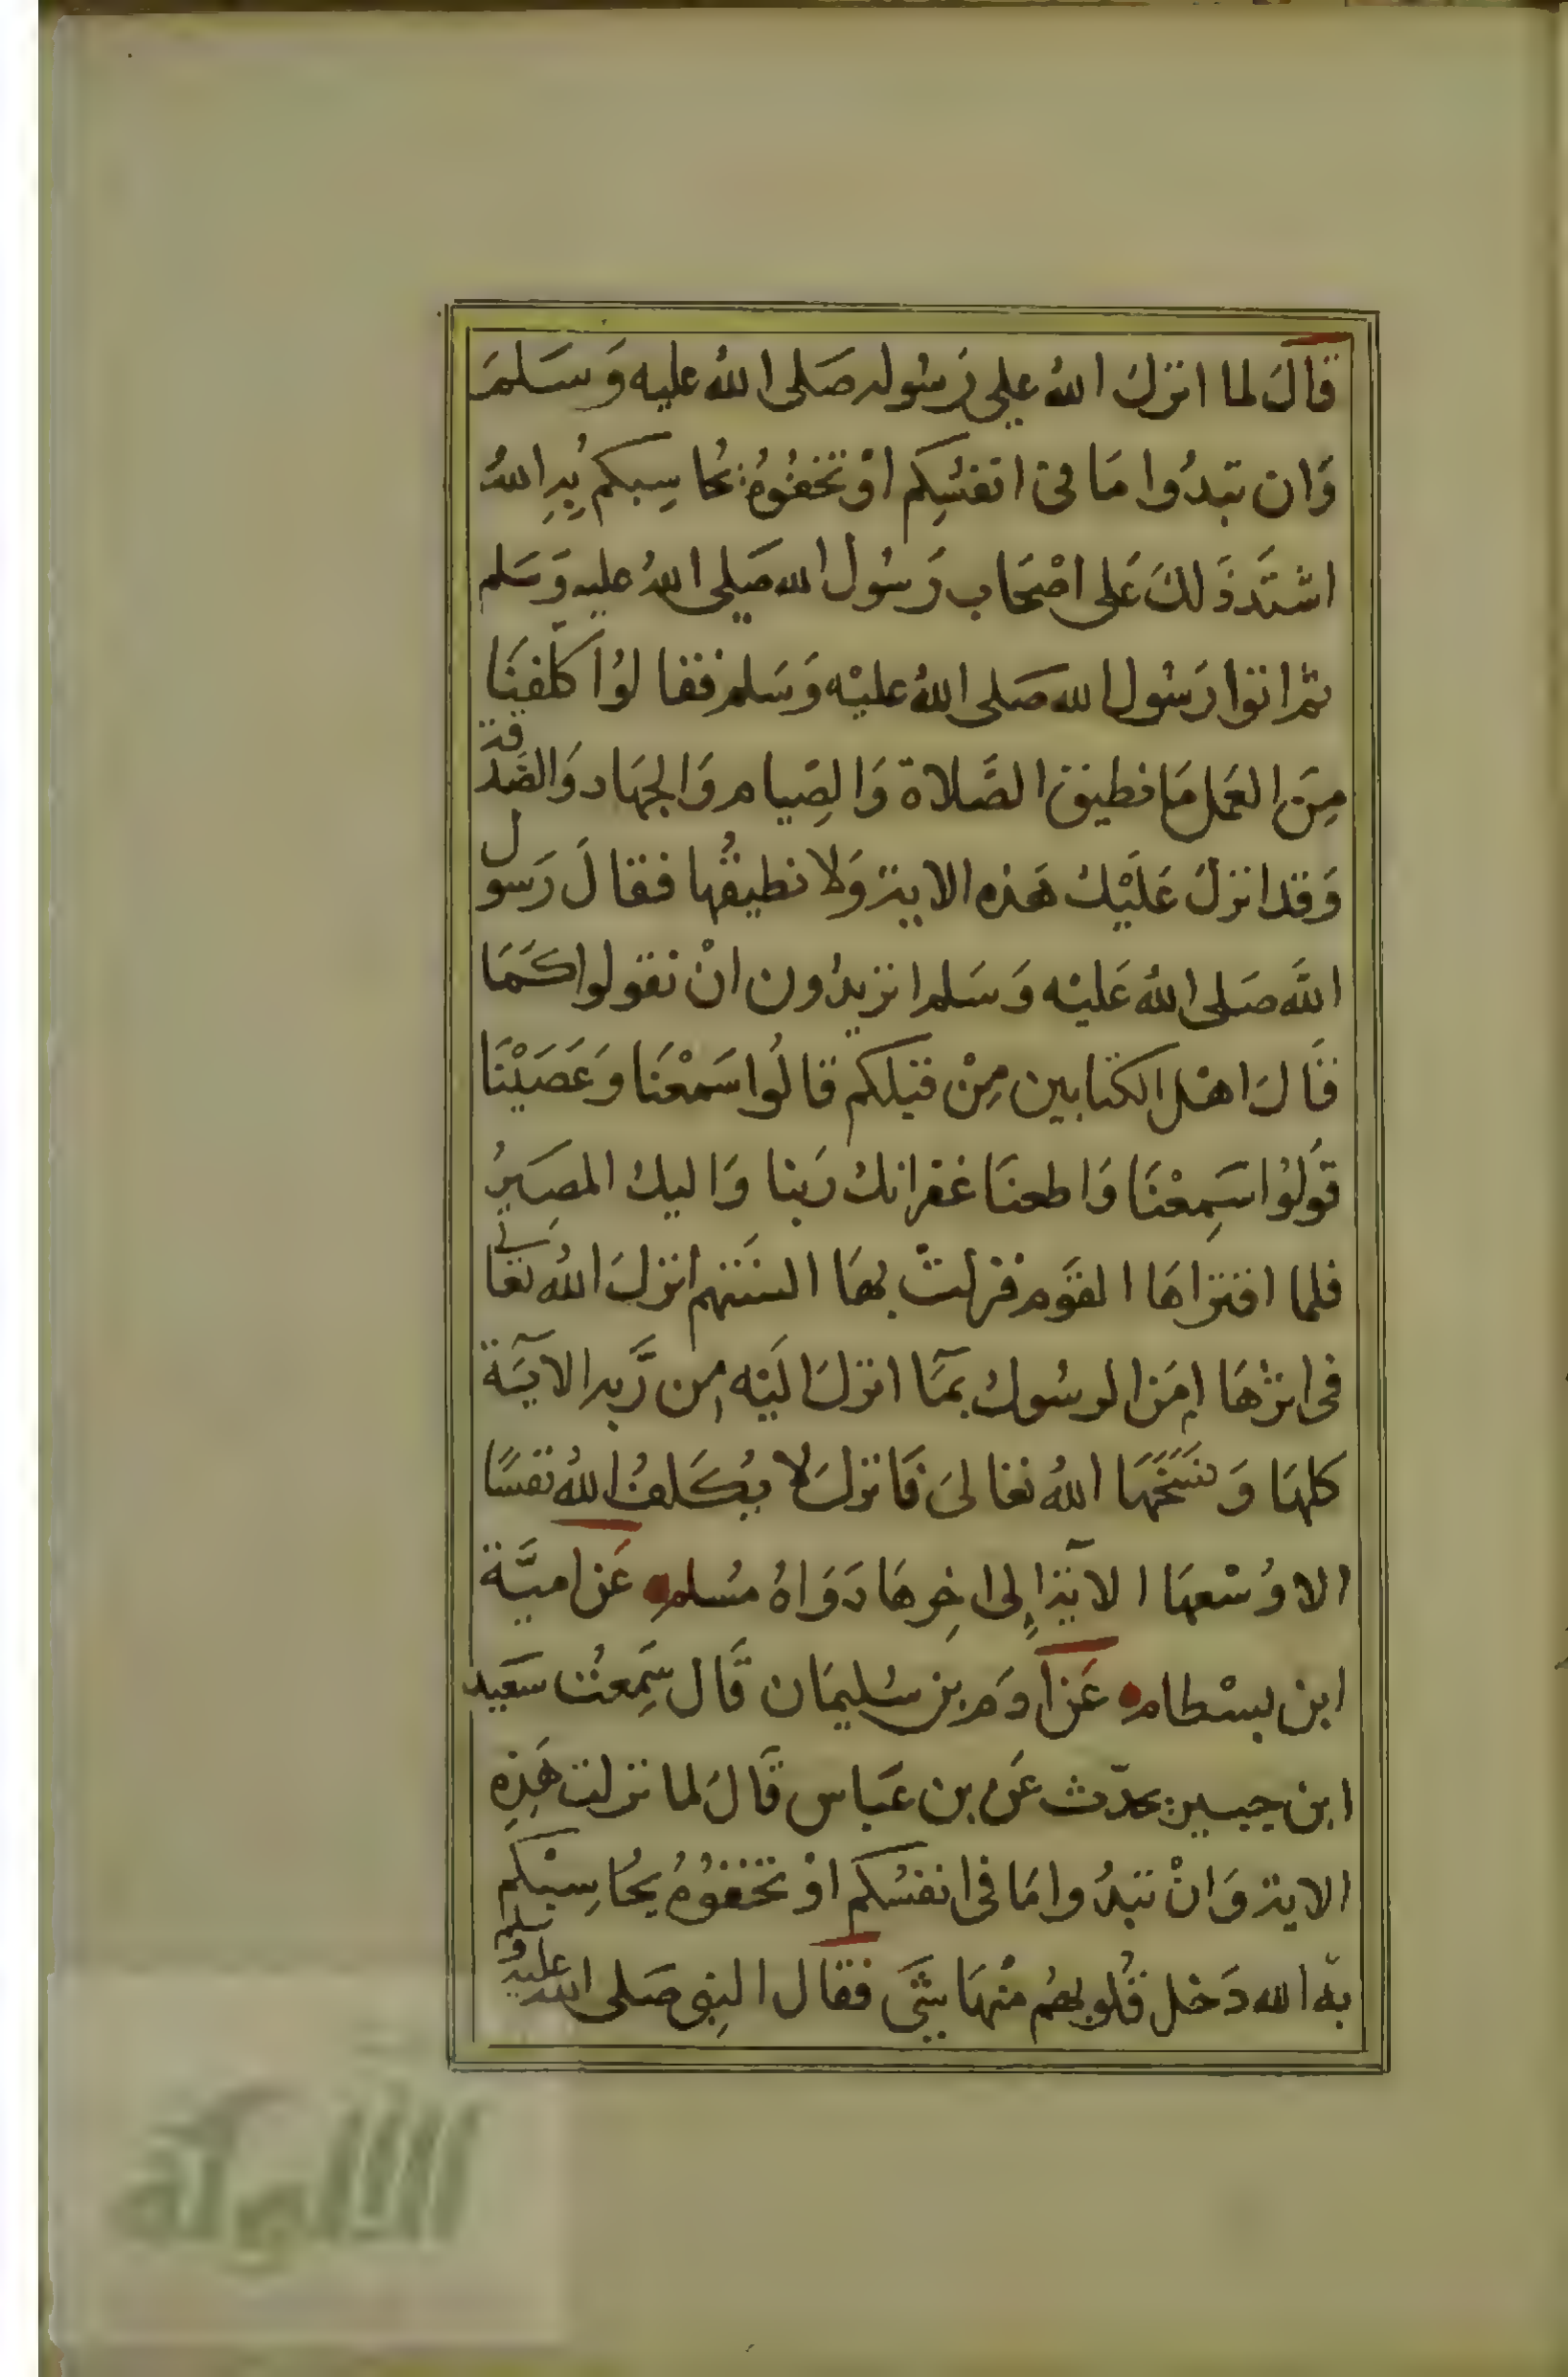 قالَ لما انزلَ اللهُ على رَسُوله صَلى اللهُ عليه وَسَلمَ
وَان تبدُوا مَا فى انفسِكم اوْ تخفُوهُ يحُاسِبكمُ بِهِ اللهُ
اشتَد ذَلكَ عَلى اصْحَاب رَسُول الله صَلى اللهُ عليه وَسَلم
ثم اتوا رَسُول الله صَلى اللهُ عليْه وَسَلم فقالوُا كلفِنَا
مِنَ العَمل مَا نطيق الصَّلاة وَالصِيام وَالجهَاد وَالصَدقة
وَقد انزلَ عَلَيْك هَذه الاية وَلا نطيقُها فقالَ رَسول
اللَّه صَلى اللهُ عَليْه وَسَلم اتريدُون انْ تقولوا كَمَا
قَالَ اهْل الكتابين مِنْ قبلكم قالُوا سَمعْنَا وَعَصَيْنَا
قوَلوُا سَمِعْنَا وَاطعنَا غفرانك رَبنا وَاليك المصِيَرُ
فلما اقتراهَا القوَم فزلتْ بهَا السنَتهم انزلَ اللهُ تعَالى
فى اثرْهَا امَن الرسُول بمَآ انزلَ اليَه من رَّبه الآيَة
كلهَا وَنسَخَهَا اللهُ تعَالىَ فَانزلَ لا يُكَلفُ اللهُ نفسًا
الا وُسْعهَا الآية إلى اخِرهَا رَوَاهُ مُسْلم عَن اميَّة
ابن بسْطام عَن آدَم بن سُليمَان قَال سَمِعْت سَعيد
ابن جبير يحدّث عَن بن عَباس قَالَ لما نزلت هَذِه
الاية وَانْ تبدُوا مَا فى انفسُكم اوْ تخفوُهُ يحُاسِبْكم
به الله دَخل قُلوبهُم منْهَا شَىٌ فقَال النبِى صَلى الله عليهُ وسلم
الألوكة